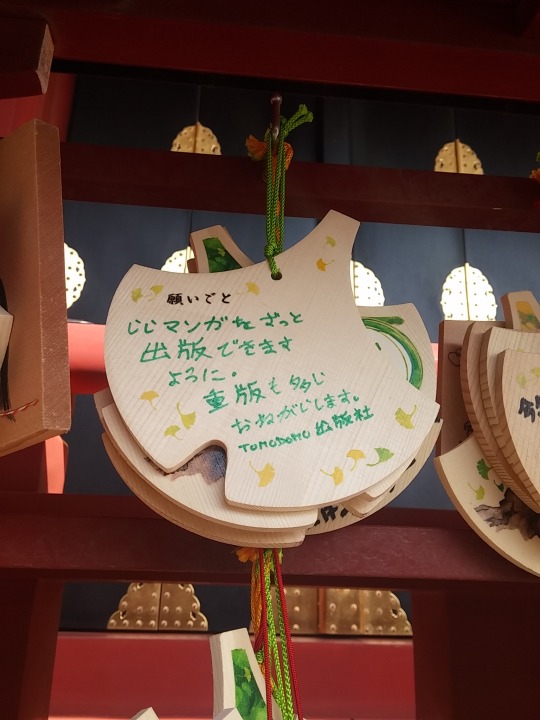 願いごと
いいマンガをずっと
出版できます
ように。
重版も多し
おねがいします。
TOMODOMO 出版社